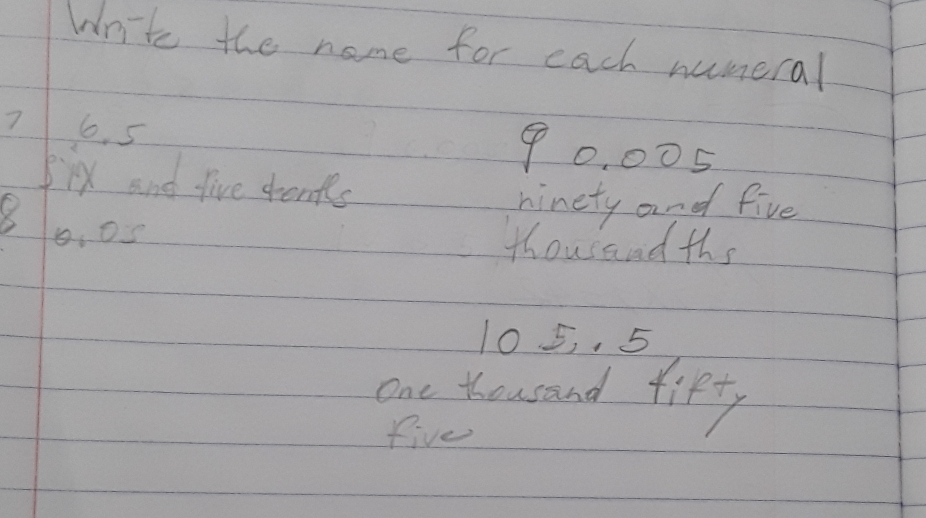 Write the name for each numeral
7 6.5
Six and five tenths
8 0.05
9 0.005
ninety and five
thousandths
10 5,.5
One thousand fifty
five